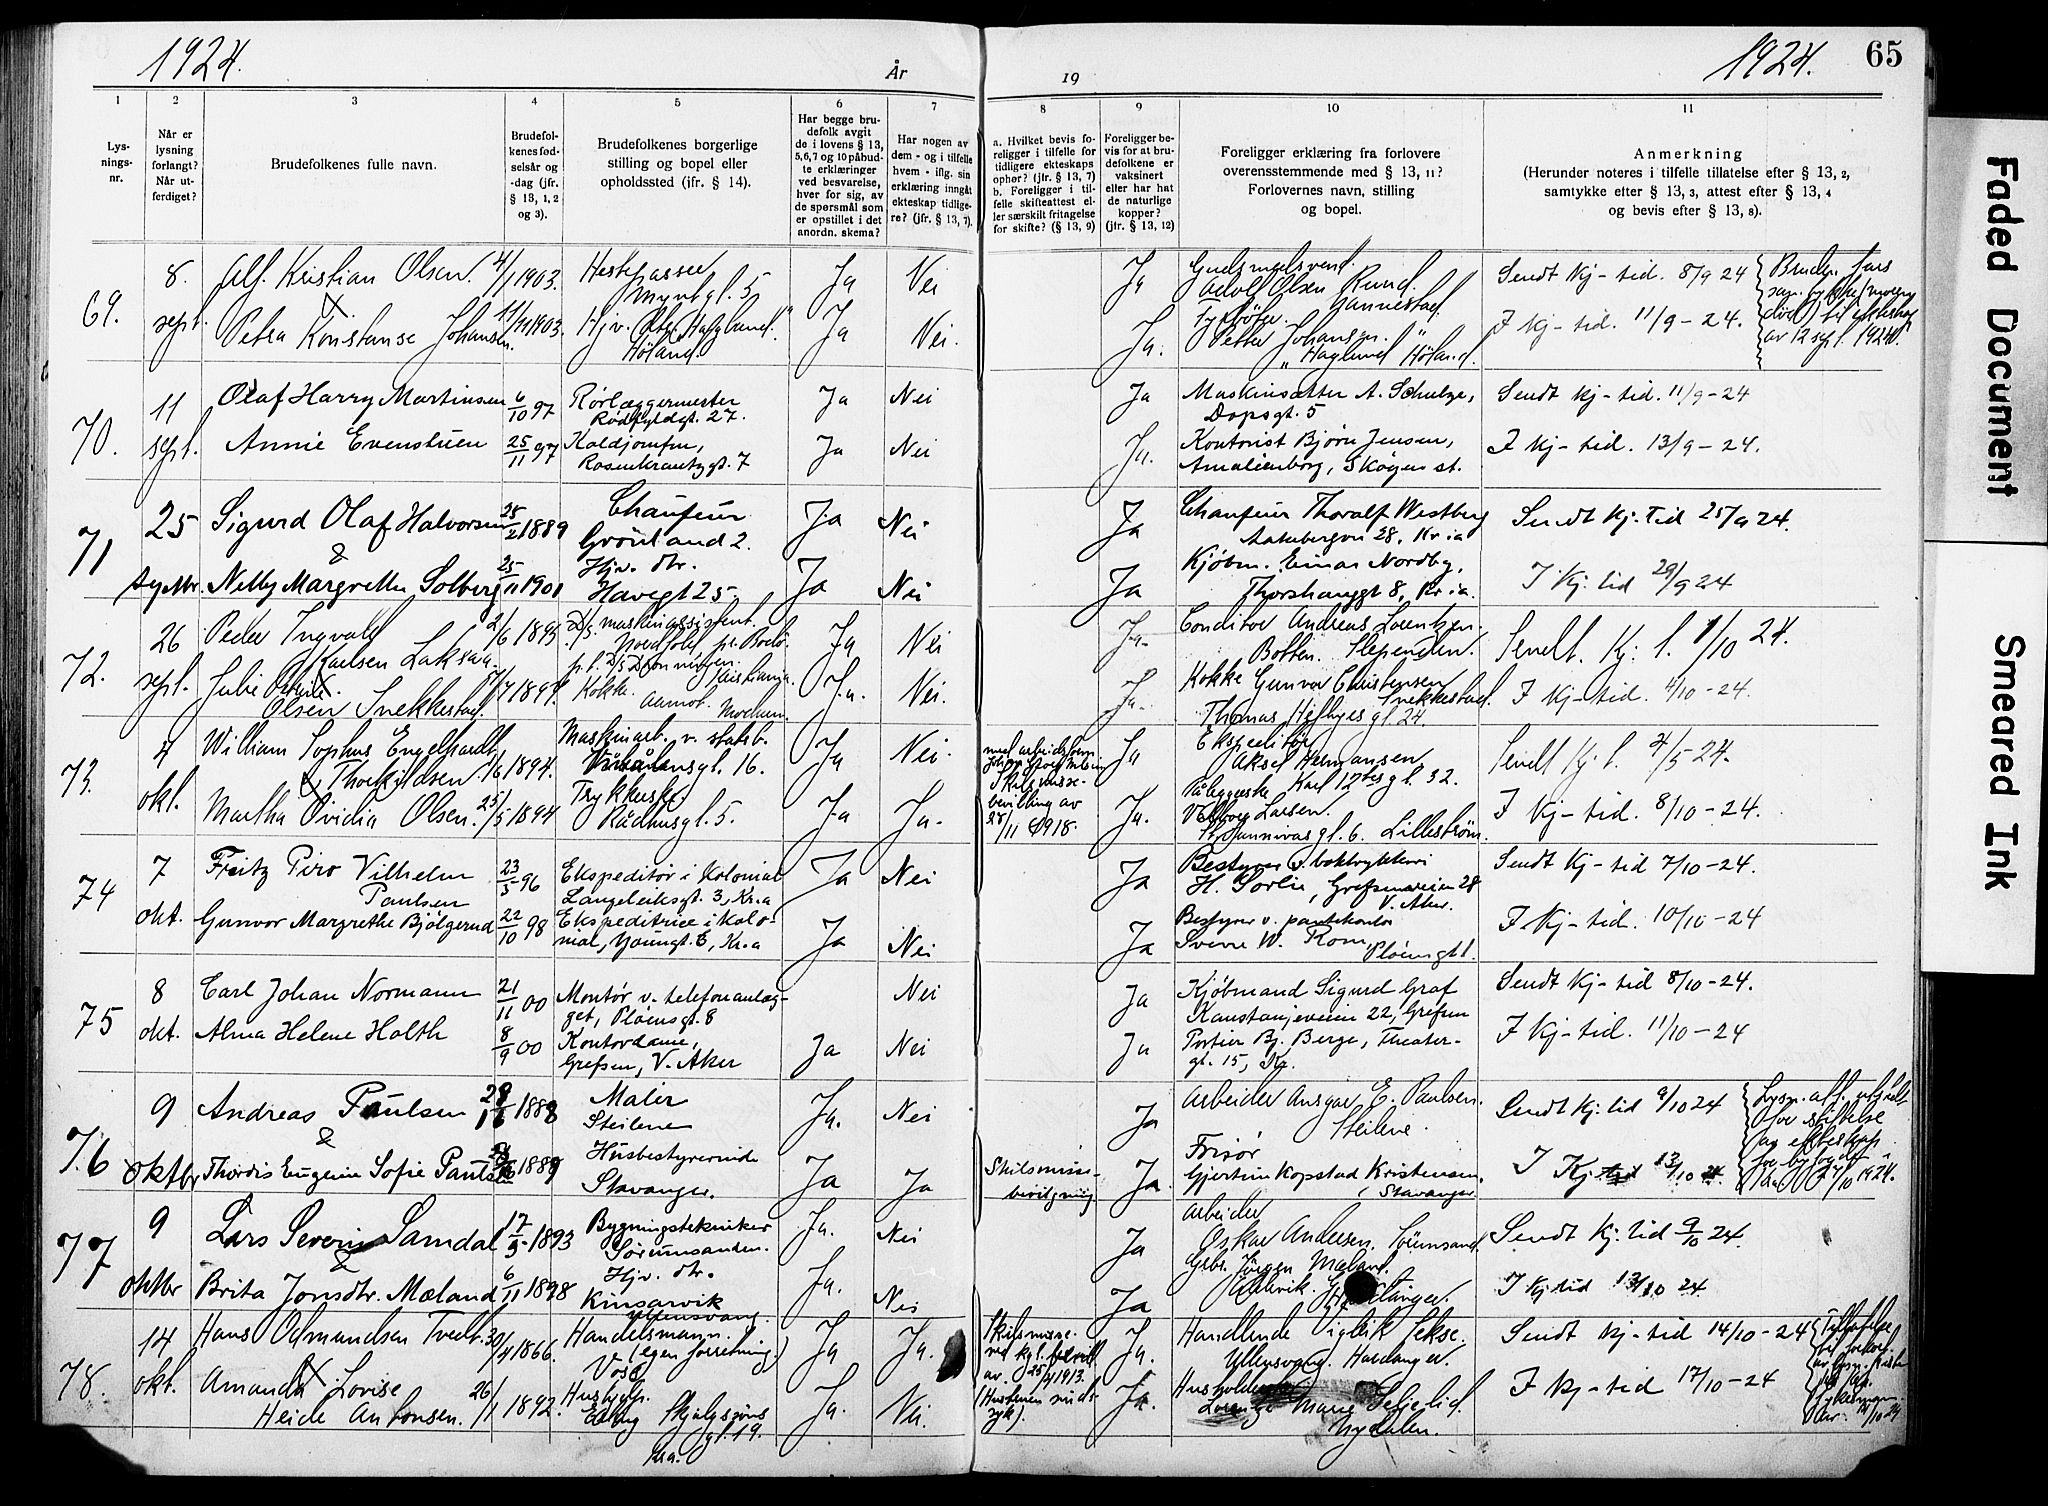 1924.
År
19
1924.
65
1
2
3
4
5
6
7
8
9
10
11
Lys-
nings-
nr.
Når er
lysning
forlangt?
Når ut-
ferdiget?
Brudefolkenes fulle navn.
Brudefol-
kenes fød-
selsår og
-dag (jfr.
§ 13, 1, 2
og 3).
Brudefolkenes borgerlige
stilling og bopel eller
opholdssted (jfr. § 14).
Har begge bru-
defolk avgit
de i lovens § 13,
5,6,7 og 10 påbud-
te erklæringer
ved besvarelse,
hver for sig, av
de spørsmål som
er opstillet i det
anordn. skema?
Har nogen av
dem - og i tilfelle
hvem - iflg. sin
erklæring inngått
ekteskap tidlige-
re? (jfr. § 13, 7).
a. Hvilket bevis fo-
religger i tilfelle for
tidligere ekteskaps
ophør? (jfr. § 13, 7)
b. Foreligger i til-
felle skifteattest el-
ler særskilt fritagelse
for skifte? (§ 13, 9)
Foreligger be-
vis for at bru-
defolkene er
vaksinert
eller har hat
de naturlige
kopper?
(jfr. § 13, 12)
Foreligger erklæring fra forlovere
overensstemmende med § 13, 11?
Forlovernes navn, stilling
og bopel.
Anmerkning
(Herunder noteres i tilfelle tillatelse efter § 13, 2,
samtykke efter § 13, 3, attest efter § 13, 4
og bevis efter § 13, 8).
69.
8. Alf Kristian Olsen. 4/1 1903. Ja Nei
Ja Adolf Olsen Rund. Sendt Kj-tid. 8/9 24
sept. Petra Konstanse Johansen. 11/11 1903. Høland. Ja Nei.
Ja. Petter Johansen Haglund Høland. I Kj-tid. 11/9-24.
av 12 sept. 1924.
70.
11 Olaf Harry Martinsen 6/10 97 Rørlæggermester Ja Nei
Ja A. Schulze, Sendt Kj-tid. 11/9-24
Dopsgt. 5
sept. Annie Evenstuen 25/11 97 Koldjomfru, Ja Nei
Rosenkrantzgt. 7
Ja. Kontorist Bjørn Jensen, I Kj-tid. 13/9-24.
Amalienborg, Skøyen st.
71
25 Sigurd Olaf Halvorsen 1889 Chaufeur Ja Nei
Grönland 2.
Ja Chaufeur Thoralf Westberg Sendt Kj. Tid 25/9 24.
28, Kr.ia
&
Nelly Margrethe Solberg 25/11 1901 Hjv. dtr. Ja Nei
Havegt 25
Ja Kjøbm. Einar Nordby, I Kj. tid 29/9 24
8, Kr.ia.
72.
26 Peder Ingvald 2/6 1895 Ja Nei
Karlsen Laksaa
Ja. Conditor Andreas Lorentzen. Sendt. Kj. t. 1/10 24.
Botten. Slependen.
sept. Julie 1897. Kokke. Ja. Nei.
Olsen Snekkestad.
Ja. Kokke Gunvor Christensen Snekkestad. I Kj-tid. 4/10-24.
Thomas Heftyes gt. 24
73.
4 William Sophus Engelhardt 1894. Maskinarb. v. statsb. Ja Nei.
Thorkildsen gt. 16.
bevilling av
28/11 1918.
Ja Ekspeditør Sendt Kj. t. 4/5-24.
Aksel Hermansen
Karl 12tes gt. 32.
okt. Martha Ovidia Olsen. 25/5 1894 Ja Ja.
Rådhusgt. 5.
Ja. Larsen. I Kj-tid. 8/10-24.
gt. 6. Lillestrøm.
74
7 Fritz Piro Vilhelm 23/5 96 Ekspeditør i Kolonial Ja Nei
Paulsen Langeleiksgt. 3, Kr.a
Ja Bestyrer v. boktrykkeri Sendt Kj-tid 7/10-24.
H. Sørlie, Grefsenveien 28
V. Aker.
okt. Gunvor Margrethe Bjølgerud 22/10 98 Ekspeditrice i Kolo- Ja Nei
nial, Youngsgt. 6, Kr.a
Ja Bestyrer v. pantekontor I Kj-tid. 10/10-24
Sverre W. Rom, Pløensgt 1.
75
8 Carl Johan Normann 21/11 00 Montør v. telefonanlæg- Nei
get, Pløensgt. 8
Ja Kjøbmand Sigurd Graf Sendt Kj-tid 8/10-24.
Kastanjeveien 22, Grefsen
okt. Alma Helene Holth 8/9 00 Kontordame, Ja Nei
Grefsen, V. Aker
Ja Portier Bj. Berge, Theater- I Kj-tid. 11/10-24
gt. 15, Kr.
76
9 Andreas Paulsen 1888 Maler Ja. Nei
Steilene
Ja Arbeider Ansgar E. Paulsen. Sendt Kj. tid 9/10 24
Steilene.
&
oktbr Thordis Eugenie Sofie Paulsen 1889 Husbestyrerinde Ja Ja
Stavanger.
Skilsmisse-
bevilgning
Ja. Frisør
Gjertin Kopstad Kristensen, I Kj. tid 13/10 24
Stavanger
77
9 Lars Severin Samdal 17/5 1893 Bygningstekniker Ja. Nei
Sørumsanden.
Ja Arbeider
Oskar Andersen. Sørumsand. Sendt Kj. tid 9/10 24.
&
oktbr Brita Jonsdtr. Mæland 6/11 1898 Hjv. dtr. Ja. Nei
Kinsarvik
Ullensvang.
Ja Gbr. Jørgen Mæland. I Kj. tid 13/10 24.
78.
14 Hans Odmundsen Tveit. 1866. Handelsmann. Ja Ja.
(egen forretning.)
Voss
Skilsmisse.
1913.
Ja. Handlende Vigleik Sekse. Sendt Kj-tid 14/10-24
Ullensvang. Hardanger.
okt. Amanda Lovise 26/1 1892. Hushjelp. Ja. Nei.
Heide Antonsen. gt. 19.
Kra.
Ja. Marie Seljelid I Kj-tid 17/10-24
Nydalen.
Faded Document
Smeared Ink